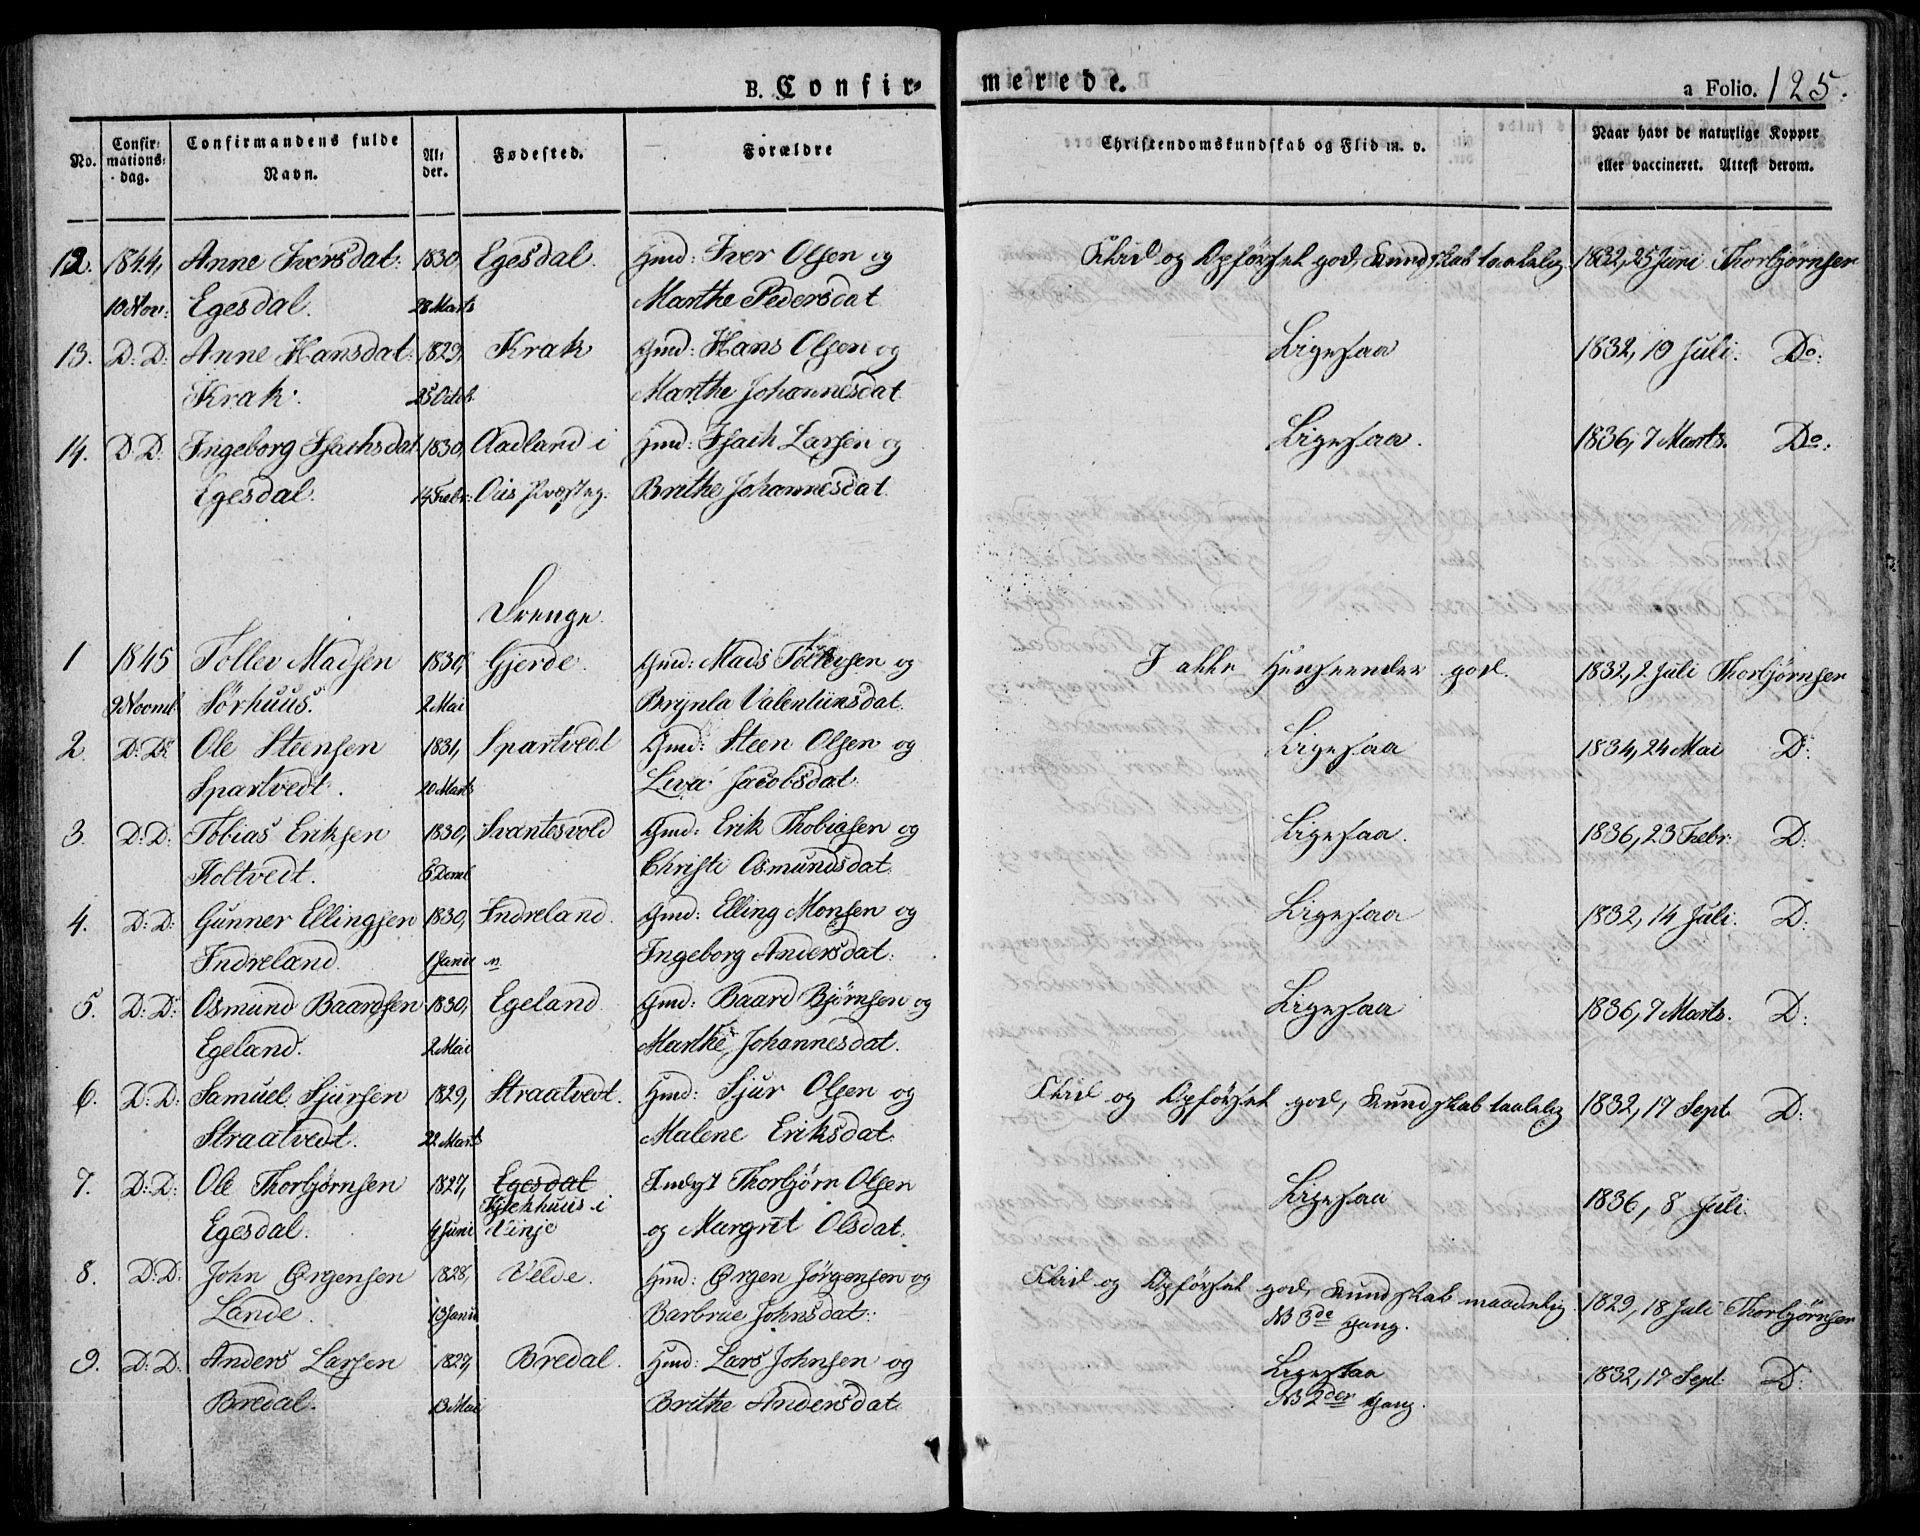 B. Confir- merede.
a Folio. 125.
No.
Confir-
mations-
dag.
Confirmandens fulde
Navn.
Al-
der.
Fødested.
Forældre
Christendomskundskab og Flid m. v.
Naar havt de naturlige Kopper
eller vaccineret. Attest derom.
12. 1844, Anne Iversdat: 1830, Egesdal. Gmd: Iver Olsen og Flid og Opførsel god, Kundskab taalelig 1832, 25 Juni Thorbjørnsen
10 Nov: Egesdal. 28 Marts Marthe Pedersdat
13. D: D: Anne Hansdat: 1829, Krak Gmd: Hans Olsen og Ligesaa 1832, 10 Juli. Do:
Krak. 25 Octob. Marthe Johannesdat
14. D: D: Ingeborg Isachsdat 1830, Aadland i Gmd: Isach Larsen og Ligesaa. 1836, 7 Marts. Do:
Egesdal. 14 Febr: Ous Præsteg: Brithe Johannesdat.
Drenge.
1 1845 Tollev Madsen 1830, Gjerde. Gmd: Mads Tollevsen og I alle Henseender god. 1832, 2 Juli Thorbjørnsen
9 Novmb. Sørhuus. 2 Mai Brynla Valentinsdat.
2. D: D: Ole Steensen 1831, Spartvedt Gmd: Steen Olsen og Ligesaa 1834, 24 Mai D:
Spartvedt. 20 Marts Liva Jacobsdat.
3. D: D: Tobias Eriksen 1830, Svantesvold Gmd: Erik Thobiasen og Ligesaa. 1836, 23 Febr: D:
Holtvedt. Christi Osmundsdat.
4. D: D: Gunner Ellingsen 1830, Indreland. Gmd: Elling Monsen og Ligesaa 1832, 14 Juli. D:
Indreland. 1 Janu Ingeborg Andersdat:
5. D: D: Osmund Baardsen 1830, Egeland. Gmd: Baard Bjørnsen og Ligesaa 1836, 7 Marts. D:
Egeland. 2 Mai Marthe Johannesdat.
6. D: D: Samuel Sjursen 1829, Straatvedt. Gmd: Sjur Olsen og Flid og Opførsel god, Kundskab taalelig 1832, 17 Sept. D:
Straatvedt. 22 Marts Malene Eriksdat.
7. D: D: Ole Thorbjørnsen 1827, Egesdal Thorbjørn Olsen Ligesaa 1836, 8 Juli.
Egesdal. 4 Juni i Vinje og Margrit Olsdat.
8. D: D: John Ørgensen 1828, Velde. Gmd: Ørgen Jørgensen og Flid og Opførsel god, Kundskab maadelig 1829, 18 Juli Thorbjørnsen
Lande. 13 Janu Barbrue Johnsdat: NB 3de Gang.
9. D: D: Anders Larsen 1827, Bredal. Gmd: Lars Johnsen og Ligesaa 1832, 17 Sept: D:
Bredal. 13 Mai Brithe Andersdat. NB 2den Gang.